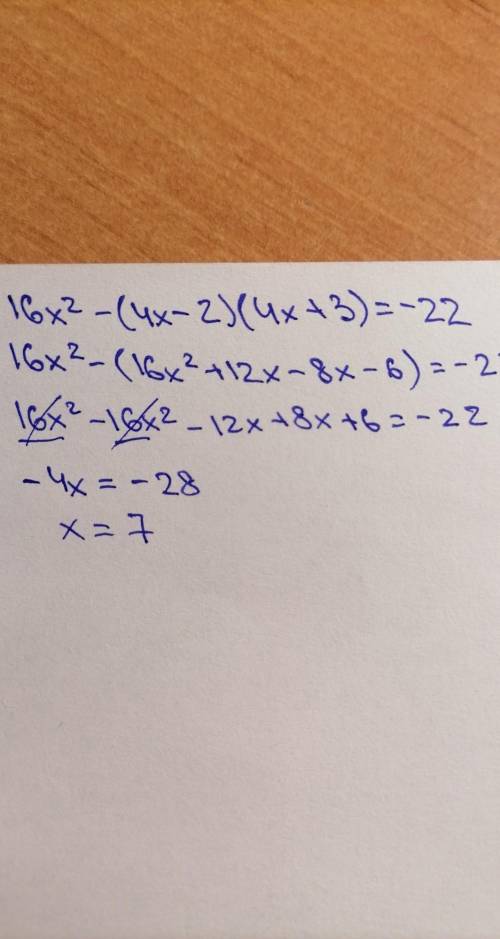 16x² - (4x - 2)(4x + 3) = -22
16x² - (16x² + 12x - 8x - 6) = -2
16x² - 16x² - 12x + 8x + 6 = -22
-4x = -28
x = 7